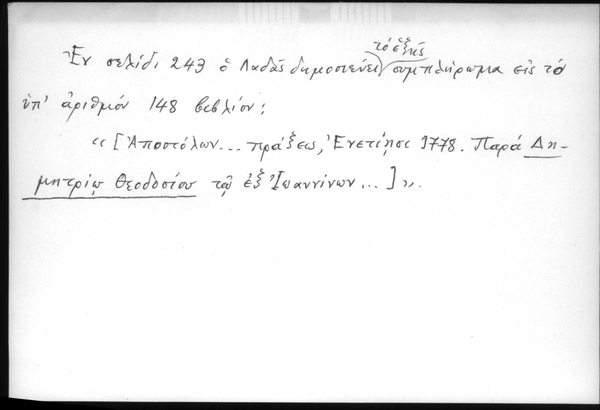 Ἐν σελίδι 243 ὁ Λαδᾶς δημοσιεύει τό ἑξῆς συμπλήρωμα εἰς τό
ὑπ' ἀριθμόν 148 βιβλίον:
«[Ἀποστόλων... πράξεις, Ἐνετίῃσι 1778. Παρά Δη-
μητρίῳ Θεοδοσίου τῷ ἐξ Ἰωαννίνων...]».